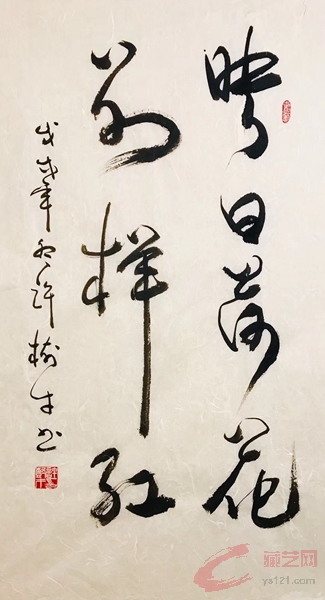 映日荷花
别样红
戊戌年冬许树生书
藏艺网
ys121.com